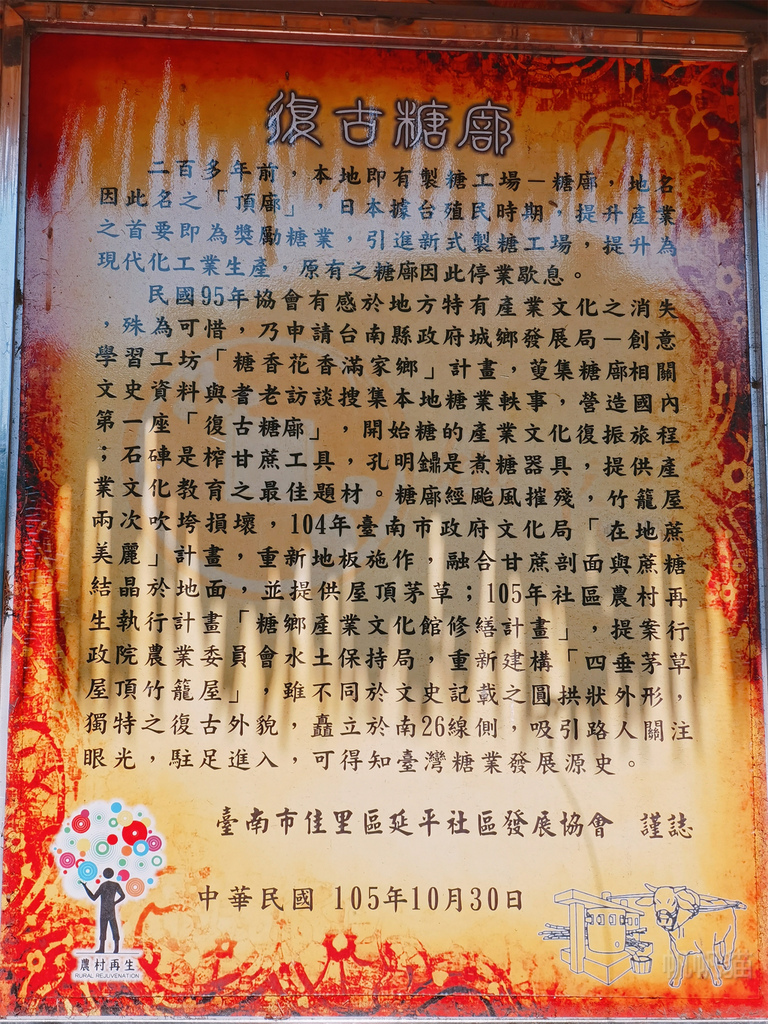 復古糖廍
二百多年前，本地即有製糖工場－糖廍，地名
因此名之「頂廍」，日本據台殖民時期，提升產業
之首要即為獎勵糖業，引進新式製糖工場，提升為
現代化工業生產，原有之糖廍因此停業歇息。
民國95年協會有感於地方特有產業文化之消失
，殊為可惜，乃申請台南縣政府城鄉發展局－創意
學習工坊「糖香花香滿家鄉」計畫，蒐集糖廍相關
文史資料與耆老訪談搜集本地糖業軼事，營造國內
第一座「復古糖廍」，開始糖的產業文化復振旅程
；石硨是榨甘蔗工具，孔明鼎是煮糖器具，提供產
業文化教育之最佳題材。糖廍經颱風摧殘，竹籠屋
兩次吹垮損壞，104年臺南市政府文化局「在地蔗
美麗」計畫，重新地板施作，融合甘蔗剖面與蔗糖
結晶於地面，並提供屋頂茅草；105年社區農村再
生執行計畫「糖鄉產業文化館修繕計畫」，提案行
政院農業委員會水土保持局，重新建構「四垂茅草
屋頂竹籠屋」，雖不同於文史記載之圓拱狀外形，
獨特之復古外貌，矗立於南26線側，吸引路人關注
眼光，駐足進入，可得知臺灣糖業發展源史。
臺南市佳里區延平社區發展協會　謹誌
中華民國 105年10月30日
農村再生
RURAL REJUVENATION